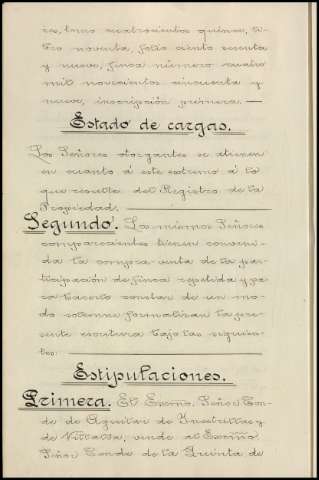 co, tomo cuatrocientos quince, li-
bro noventa, folio ciento sesenta
y nueve, finca número cuatro
mil novecientos cincuenta y
nueve, inscripción primera.
Estado de cargas.
Los Señores otorgantes se atienen
en cuanto á este extremo á lo
que resulte del Registro de la
Propiedad.
Segundo. Los mismos Señores
comparecientes tienen conveni-
da la compra-venta de la par-
ticipación de finca repetida y pa-
ra hacerlo constar de un mo-
do solemne formalizan la pre-
sente escritura bajo las siguien-
tes:
Estipulaciones.
Primera. El Excmo. Señor Con-
de de Aguilar de Inestrillas y
de Villalba, vende al Excmo.
Señor Conde de la Quinta de